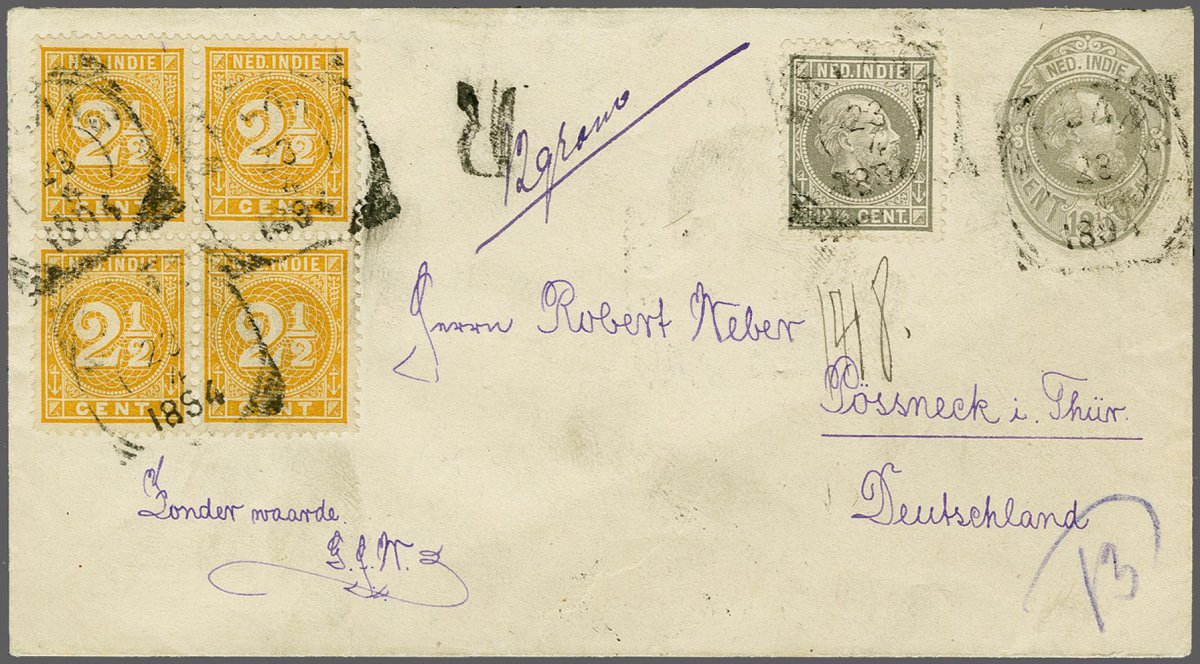 NED. INDIE
2½
CENT
NED. INDIE
2½
CENT
NED. INDIE
2½
CENT
NED. INDIE
2½
CENT
23
4
1894
R
12 gram
NED. INDIE
12½ CENT.
23
4
1894
NED. INDIE
CENT 12½
23
1894
Herrn Robert Weber
Pössneck i. Thür.
Deutschland
Zonder waarde.
13